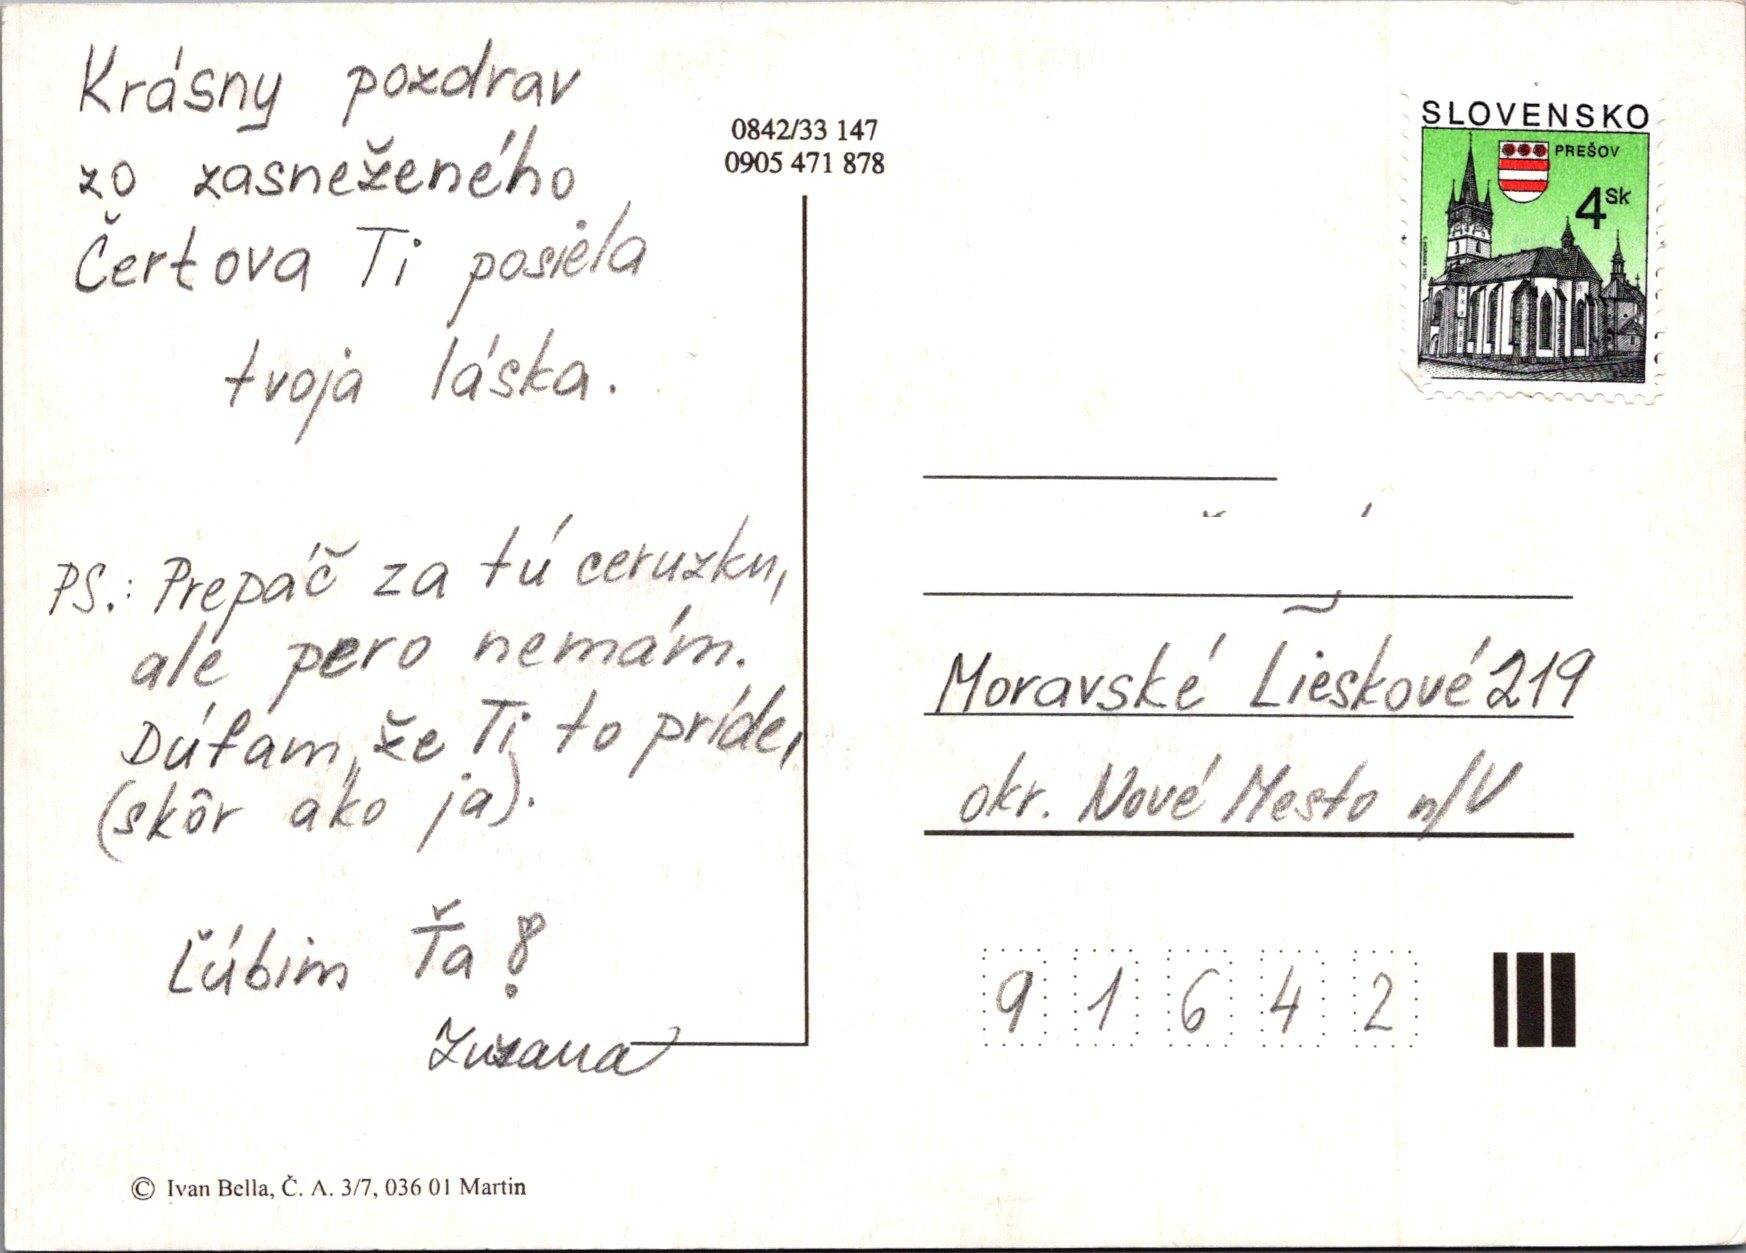 Krásny pozdrav
zo zasneženého
Čertova Ti posiela
tvoja láska.
PS.: Prepáč za tú ceruzku,
ale pero nemám.
Dúfam, že Ti to príde,
(skôr ako ja).
Ľúbim Ťa!
Zuzana
© Ivan Bella, Č. A. 3/7, 036 01 Martin
0842/33 147
0905 471 878
SLOVENSKO
PREŠOV
4 Sk
Moravské Lieskové 219
okr. Nové Mesto n/V
9 1 6 4 2